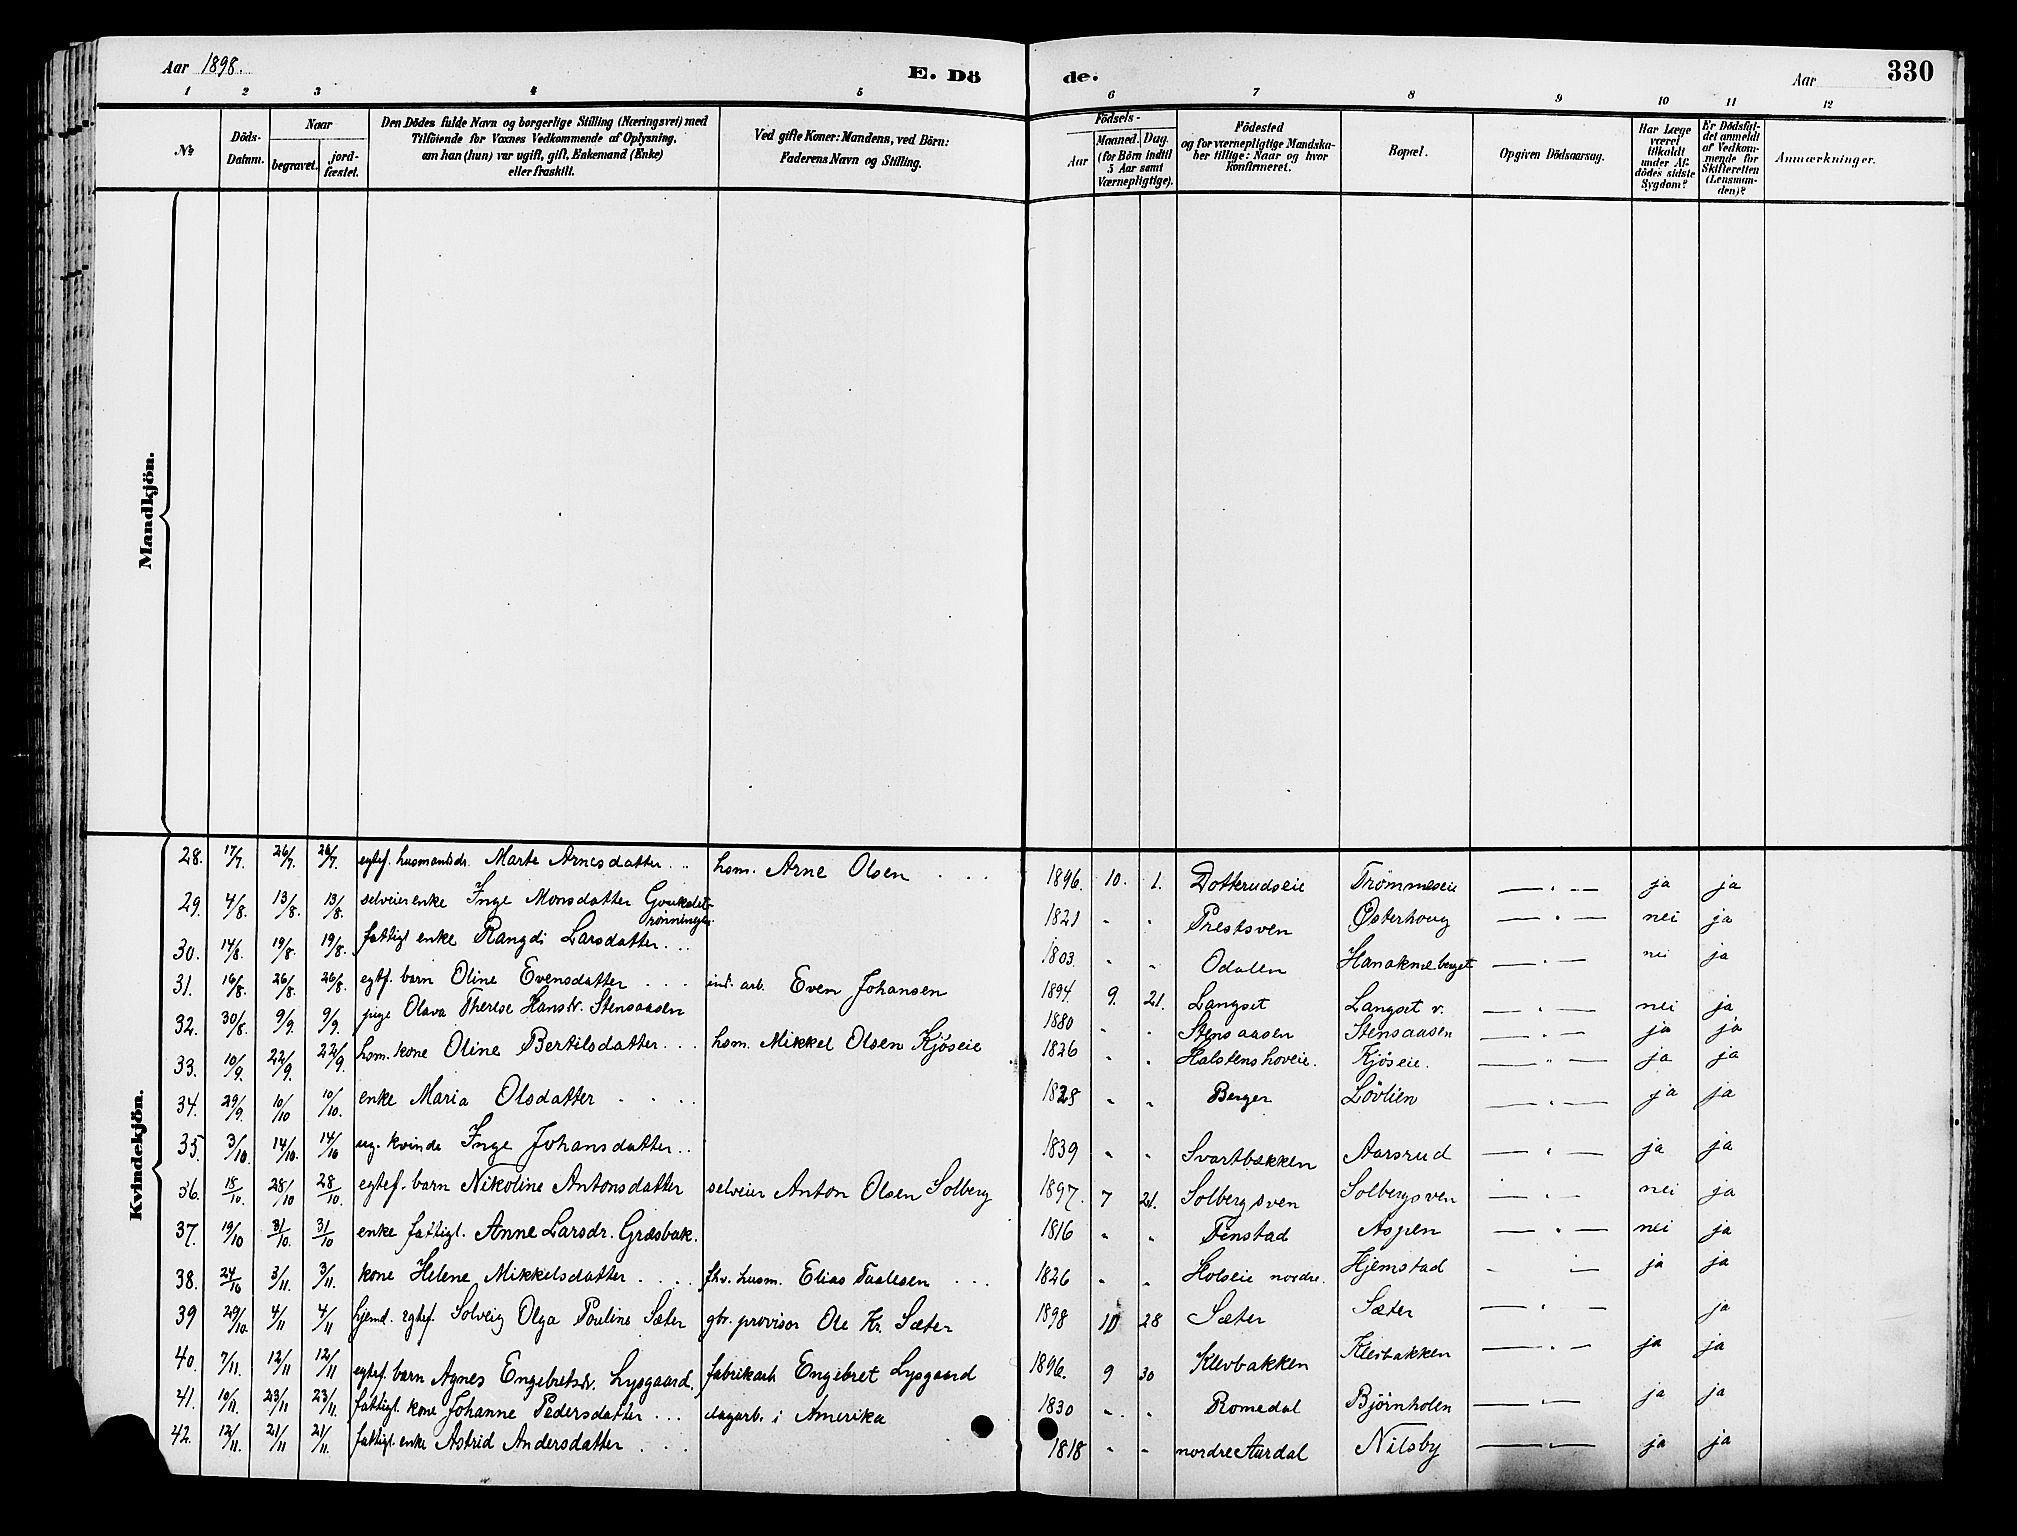 Aar 1898.
E. Dö
de.
Aar
330
1 2 3 4 5 6 7 8 9 10 11 12
№
Döds-
Datum.
Naar
begravet.
jord-
fæstet.
Den Dödes fulde Navn og borgerlige Stilling (Næringsvei) med
Tilföiende for Voxnes Vedkommende af Oplysning,
om han (hun) var ugift, gift, Enkemand (Enke)
eller fraskilt.
Ved gifte Koner: Mandens, ved Börn:
Faderens Navn og Stilling.
Födsels-
Aar
Maaned.
Dag.
(for Börn indtil
5 Aar samt
Værnepligtige).
Födested
og for værnepligtige Mandska-
ber tillige: Naar og hvor
konfirmeret.
Bopæl.
Opgiven Dödsaarsag.
Har Læge
været
tilkaldt
under Af-
dödes sidste
Sygdom?
Er Dödsfal-
det anmeldt
af Vedkom-
mende for
Skifteretten
(Lensman-
den)?
Anmærkninger.
Mandkjön.
Kvindekjön.
28. 17/7. 26/7. 26/7. egtef. husmandsdr. Marte Arnesdatter . . hsm. Arne Olsen . . . 1896. 10. 1. Dotterudseie Trømmeseie — . — ja ja
29. 4/8. 13/8. 13/8. selveierenke Inge Monsdatter 1821 - - Prestsven Østerhoug — . — nei ja
30. 14/8. 19/8. 19/8. fattigl enke Rangdi Larsdatter . . . 1803. - - Odalen — . — nei ja
31. 16/8. 26/8. 26/8. egtf. barn Oline Evensdatter . . . ind. arb. Even Johansen 1894. 9. 21. Langset Langset v. — . — nei ja
32. 30/8. 9/9. 9/9. pige Olava Therese Hansdr. Stensaasen 1880 - - Stensaasen Stensaasen — . — ja ja
33. 10/9. 22/9. 22/9. hsm. kone Oline Bertilsdatter . . . hsm. Mikkel Olsen Kjøseie 1826 - - Halstenshoveie. Kjøseie. — " — ja ja
34. 29/9. 10/10 10/10. enke Maria Olsdatter . . . . 1828 - - Berger Løvlien — . — ja ja
35. 3/10. 14/10. 14/10 ug. kvinde Inge Johansdatter . . 1839 - - Svartbækken Aarsrud — . — ja ja
36. 18/10. 28/10 28/10. egtef. barn Nikoline Antonsdatter selveier Anton Olsen Solberg 1897. 7 21. Solbergsven Solbergsven — . — nei ja
37. 19/10 31/10. 31/10 enke fattigl. Anne Larsdr. Græsbak. 1816 - - Fenstad Aspen — . — nei ja
38. 24/10 3/11. 3/11. kone Helene Mikkelsdatter . . . . fhv. husm. Elias Paalesen . . . 1826 - - Holseie nordre. Hjemstad - — ja ja
39 29/10. 4/11 4/11 hjemd. egtef. Solveig Olga Pauline Sæter gbr. provisor Ole Kr. Sæter 1898 10 28 Sæter Sæter — . — ja
40. 7/11. 12/11 12/11 egtef. barn Agnes Engebretsdr. Lysgaard. fabrikarb Engebret Lysgaard 1896. 9 30 Klevbakken Klevbakken — . — ja ja
41. 10/11. 23/11 23/11. fattigl. kone Johanne Pedersdatter . . . dagarb. i Amerika 1830 - - Romedal Bjørnholen ja ja
42. 12/11. 21/11 21/11. fattigl. enke Astrid Andersdatter . . . 1818 - - nordre Aurdal Nilsby — — ja ja